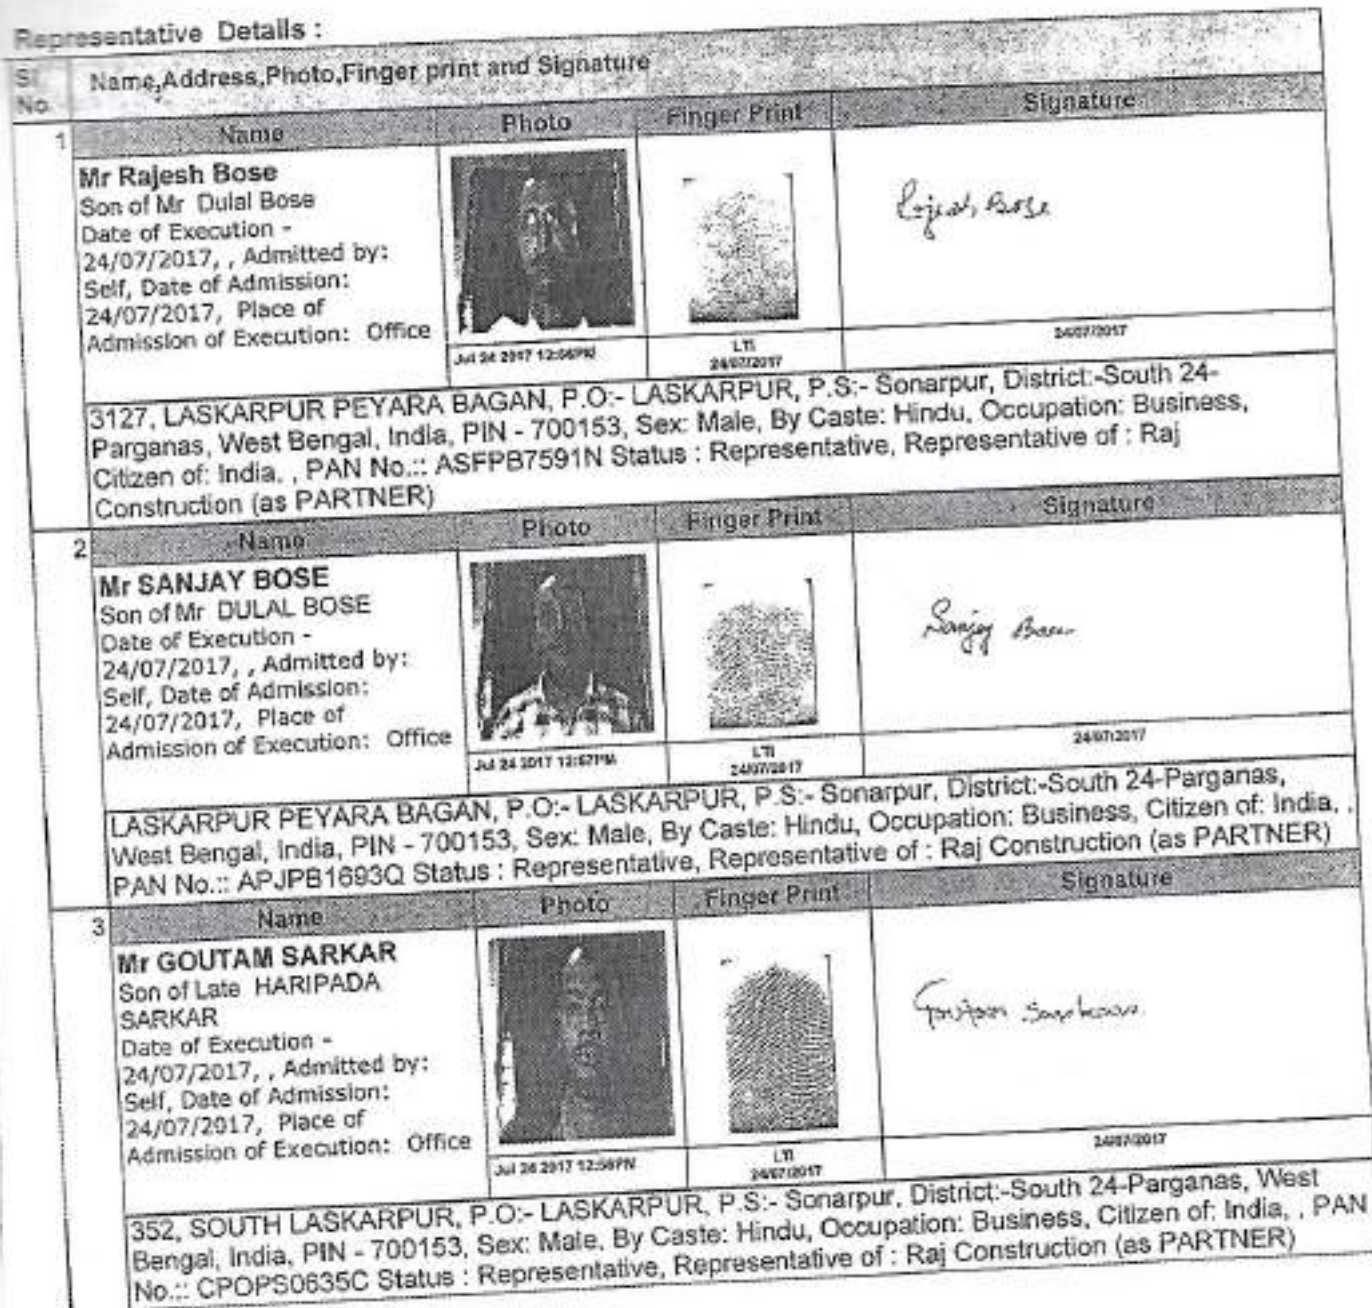 Representative Details :
Sl. No. Name,Address,Photo,Finger print and Signature
1 Name Photo Finger Print Signature
Mr Rajesh Bose
Son of Mr Dulal Bose
Date of Execution -
24/07/2017, , Admitted by:
Self, Date of Admission:
24/07/2017, Place of
Admission of Execution: Office
Rajesh Bose
Jul 24 2017 12:56PM
LTI
24/07/2017
24/07/2017
3127, LASKARPUR PEYARA BAGAN, P.O:- LASKARPUR, P.S:- Sonarpur, District:-South 24-
Parganas, West Bengal, India, PIN - 700153, Sex: Male, By Caste: Hindu, Occupation: Business,
Citizen of: India, , PAN No.:: ASFPB7591N Status : Representative, Representative of : Raj
Construction (as PARTNER)
2 Name Photo Finger Print Signature
Mr SANJAY BOSE
Son of Mr DULAL BOSE
Date of Execution -
24/07/2017, , Admitted by:
Self, Date of Admission:
24/07/2017, Place of
Admission of Execution: Office
Sanjay Bose
Jul 24 2017 12:57PM
LTI
24/07/2017
24/07/2017
LASKARPUR PEYARA BAGAN, P.O:- LASKARPUR, P.S:- Sonarpur, District:-South 24-Parganas,
West Bengal, India, PIN - 700153, Sex: Male, By Caste: Hindu, Occupation: Business, Citizen of: India, ,
PAN No.:: APJPB1693Q Status : Representative, Representative of : Raj Construction (as PARTNER)
3 Name Photo Finger Print Signature
Mr GOUTAM SARKAR
Son of Late HARIPADA
SARKAR
Date of Execution -
24/07/2017, , Admitted by:
Self, Date of Admission:
24/07/2017, Place of
Admission of Execution: Office
Goutam Sarkar
Jul 24 2017 12:56PM
LTI
24/07/2017
24/07/2017
352, SOUTH LASKARPUR, P.O:- LASKARPUR, P.S:- Sonarpur, District:-South 24-Parganas, West
Bengal, India, PIN - 700153, Sex: Male, By Caste: Hindu, Occupation: Business, Citizen of: India, , PAN
No.:: CPOPS0635C Status : Representative, Representative of : Raj Construction (as PARTNER)